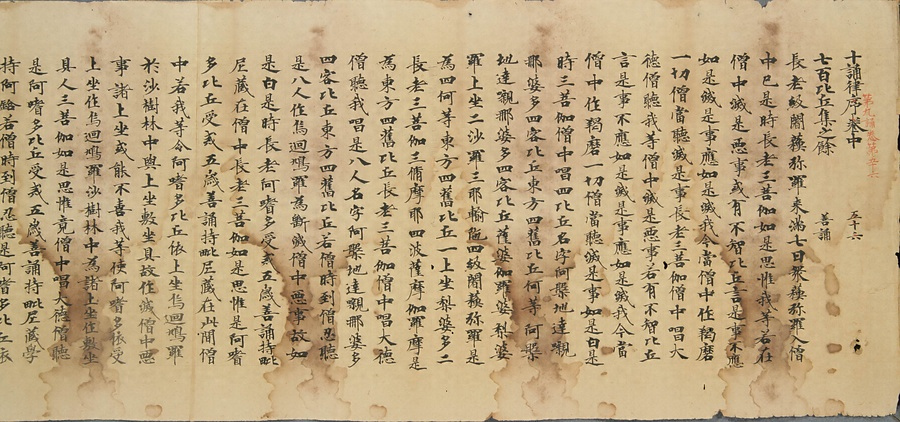 十誦律序卷中 五十六
七百比丘集之餘 善誦
長老級闍蘇弥羅來滿七日衆蘇弥羅入僧
中已是時長老三菩伽如是思惟我等若在
僧中滅是惡事或有不智比丘言是事不應
如是滅是事應如是滅我今當僧中作羯磨
一切僧當聽滅是事長老三菩伽僧中唱大
德僧聽我等僧中滅是惡事若有不智比丘
言是事不應如是滅是事應如是滅我今當
僧中作羯磨一切僧當聽滅是事如是白是
時三菩伽僧中唱四比丘名字阿槃地達嚫
那婆多四客比丘東方四舊比丘何等阿槃
地達嚫那婆多四客比丘薩婆伽羅婆梨婆
羅上坐二沙羅三耶輸陁四級闍蘇弥羅是
為四何等東方四舊比丘一上坐梨婆多二
長老三菩伽三脩摩耶四波薩摩伽羅摩是
為東方四舊比丘長老三菩伽僧中唱大德
僧聽我是八人名字阿槃地達嚫那婆多
四客比丘東方四舊比丘若僧時到僧忍聽
是八人作烏迴鳩羅為斷滅僧中惡事故如
是白是時長老阿嗜多受戒五歲善誦持毗
尼藏在僧中長老三菩伽如是思惟是阿嗜
多比丘受戒五歲善誦持毗尼藏在此間僧
中若我等令阿嗜多比丘依上坐烏迴鳩羅
於沙樹林中與上坐敷坐具故作滅僧中惡
事諸上坐或能不喜我等使阿嗜多依受
上坐作烏迴鳩羅沙樹林中為諸上坐作敷坐
具人三菩伽如是思惟竟僧中唱大德僧聽
是阿嗜多比丘受戒五歲善誦持毗尼藏學
持阿鋡若僧時到僧忍聽是阿嗜多比丘依